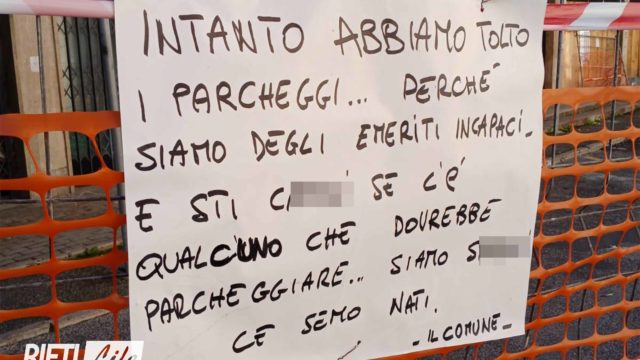 INTANTO ABBIAMO TOLTO
I PARCHEGGI... PERCHE'
SIAMO DEGLI EMERITI INCAPACI_
E STI C SE C'È
QUALCUNO CHE DOVREBBE
PARCHEGGIARE... SIAMO S
CE SEMO NATI.
- IL COMUNE -
RIETI Life